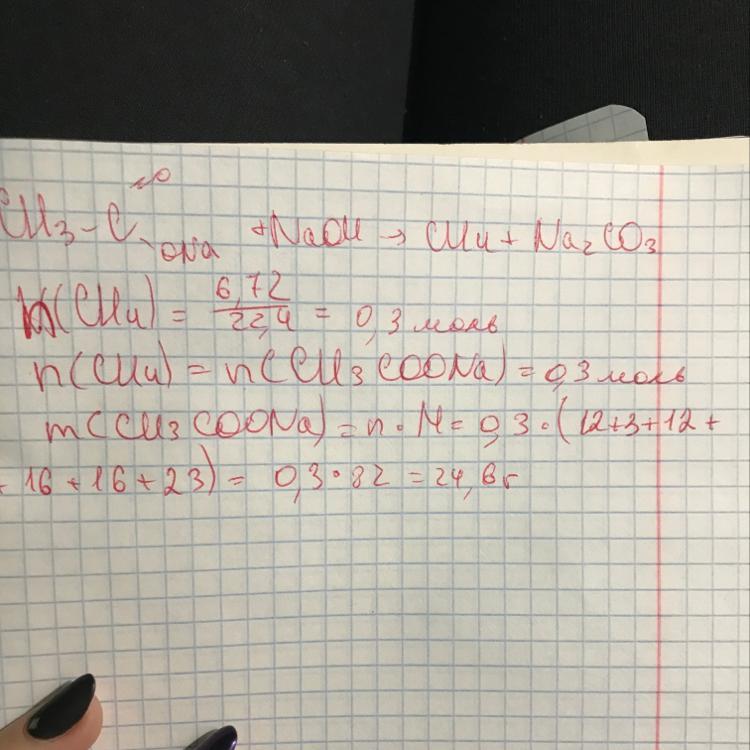 O
CH3-C
ONa +NaOH → CH4 + Na2CO3
n(CH4) = 6,72/22,4 = 0,3 моль
n(CH4) = n(CH3COONa) = 0,3 моль
m(CH3COONa) = n · M = 0,3 · (12+3+12+
+ 16 + 16 + 23) = 0,3 · 82 = 24,6 г